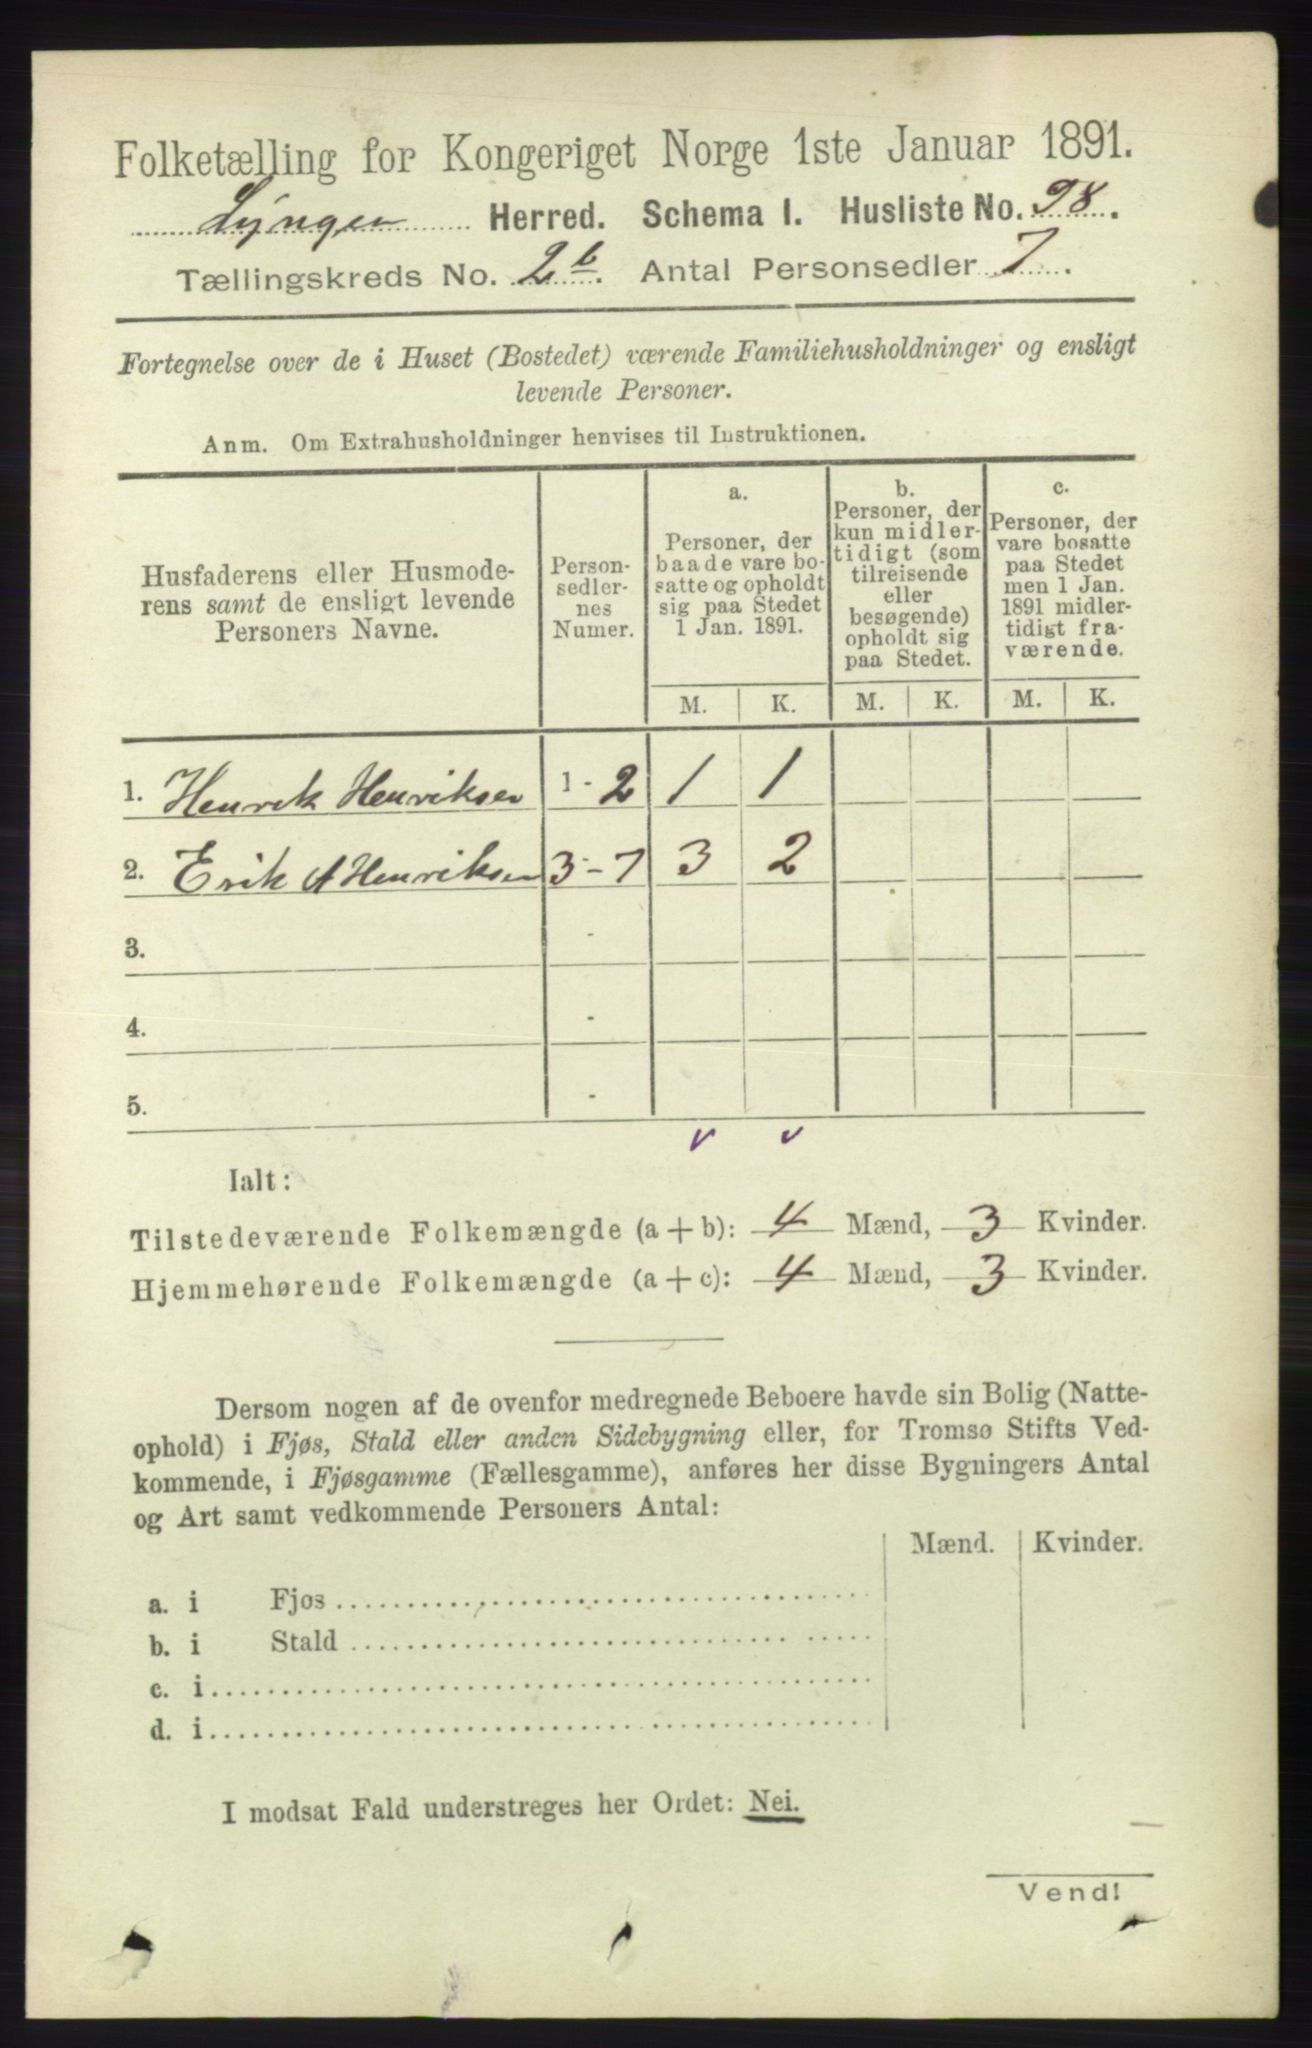 Folketælling for Kongeriget Norge 1ste Januar 1891.
Lyngen Herred. Schema I. Husliste No. 98.
Tællingskreds No. 2b. Antal Personsedler 7.
Fortegnelse over de i Huset (Bostedet) værende Familiehusholdninger og ensligt
levende Personer.
Anm. Om Extrahusholdninger henvises til Instruktionen.
Husfaderens eller Husmode-
rens samt de ensligt levende
Personers Navne.
Person-
sedler-
nes
Numer.
a.
Personer, der
baade vare bo-
satte og opholdt
sig paa Stedet
1 Jan. 1891.
b.
Personer, der
kun midler-
tidigt (som
tilreisende
eller
besøgende)
opholdt sig
paa Stedet.
c.
Personer, der
vare bosatte
paa Stedet
men 1 Jan.
1891 midler-
tidigt fra-
værende.
M. K. M. K. M. K.
1. Henrik Henriksen 1 - 2 1 1
2. Erik A Henriksen 3 - 7 3 2
3. -
4. -
5. -
Ialt:
Tilstedeværende Folkemængde (a + b): 4 Mænd, 3 Kvinder.
Hjemmehørende Folkemængde (a + c): 4 Mænd, 3 Kvinder.
Dersom nogen af de ovenfor medregnede Beboere havde sin Bolig (Natte-
ophold) i Fjøs, Stald eller anden Sidebygning eller, for Tromsø Stifts Ved-
kommende, i Fjøsgamme (Fællesgamme), anføres her disse Bygningers Antal
og Art samt vedkommende Personers Antal:
Mænd. Kvinder.
a. i Fjøs
b. i Stald
c. i
d. i
I modsat Fald understreges her Ordet: Nei.
Vend!